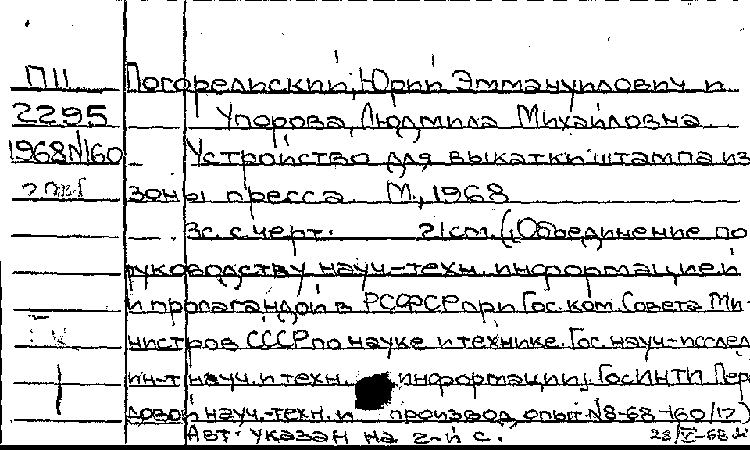 ПII Погорельский, Юрий Эммануилович и
2295 Упорова, Людмила Михайловна
1968 N160 Устройство для выкатки штампа из
зоны пресса. М., 1968
3с. с черт. 21см. (Объединение по
руководству науч.-техн. информацией
и пропагандой в РСФСР при Гос. ком. Совета Ми-
нистров СССР по науке и технике. Гос. науч-исслед.
ин-т науч. и техн. информации. ГосИНТИ. Пере
довой науч.-техн. и производ. опыт. N8-68-160/17)
Авт. указан на 2-й с. 23/V-68